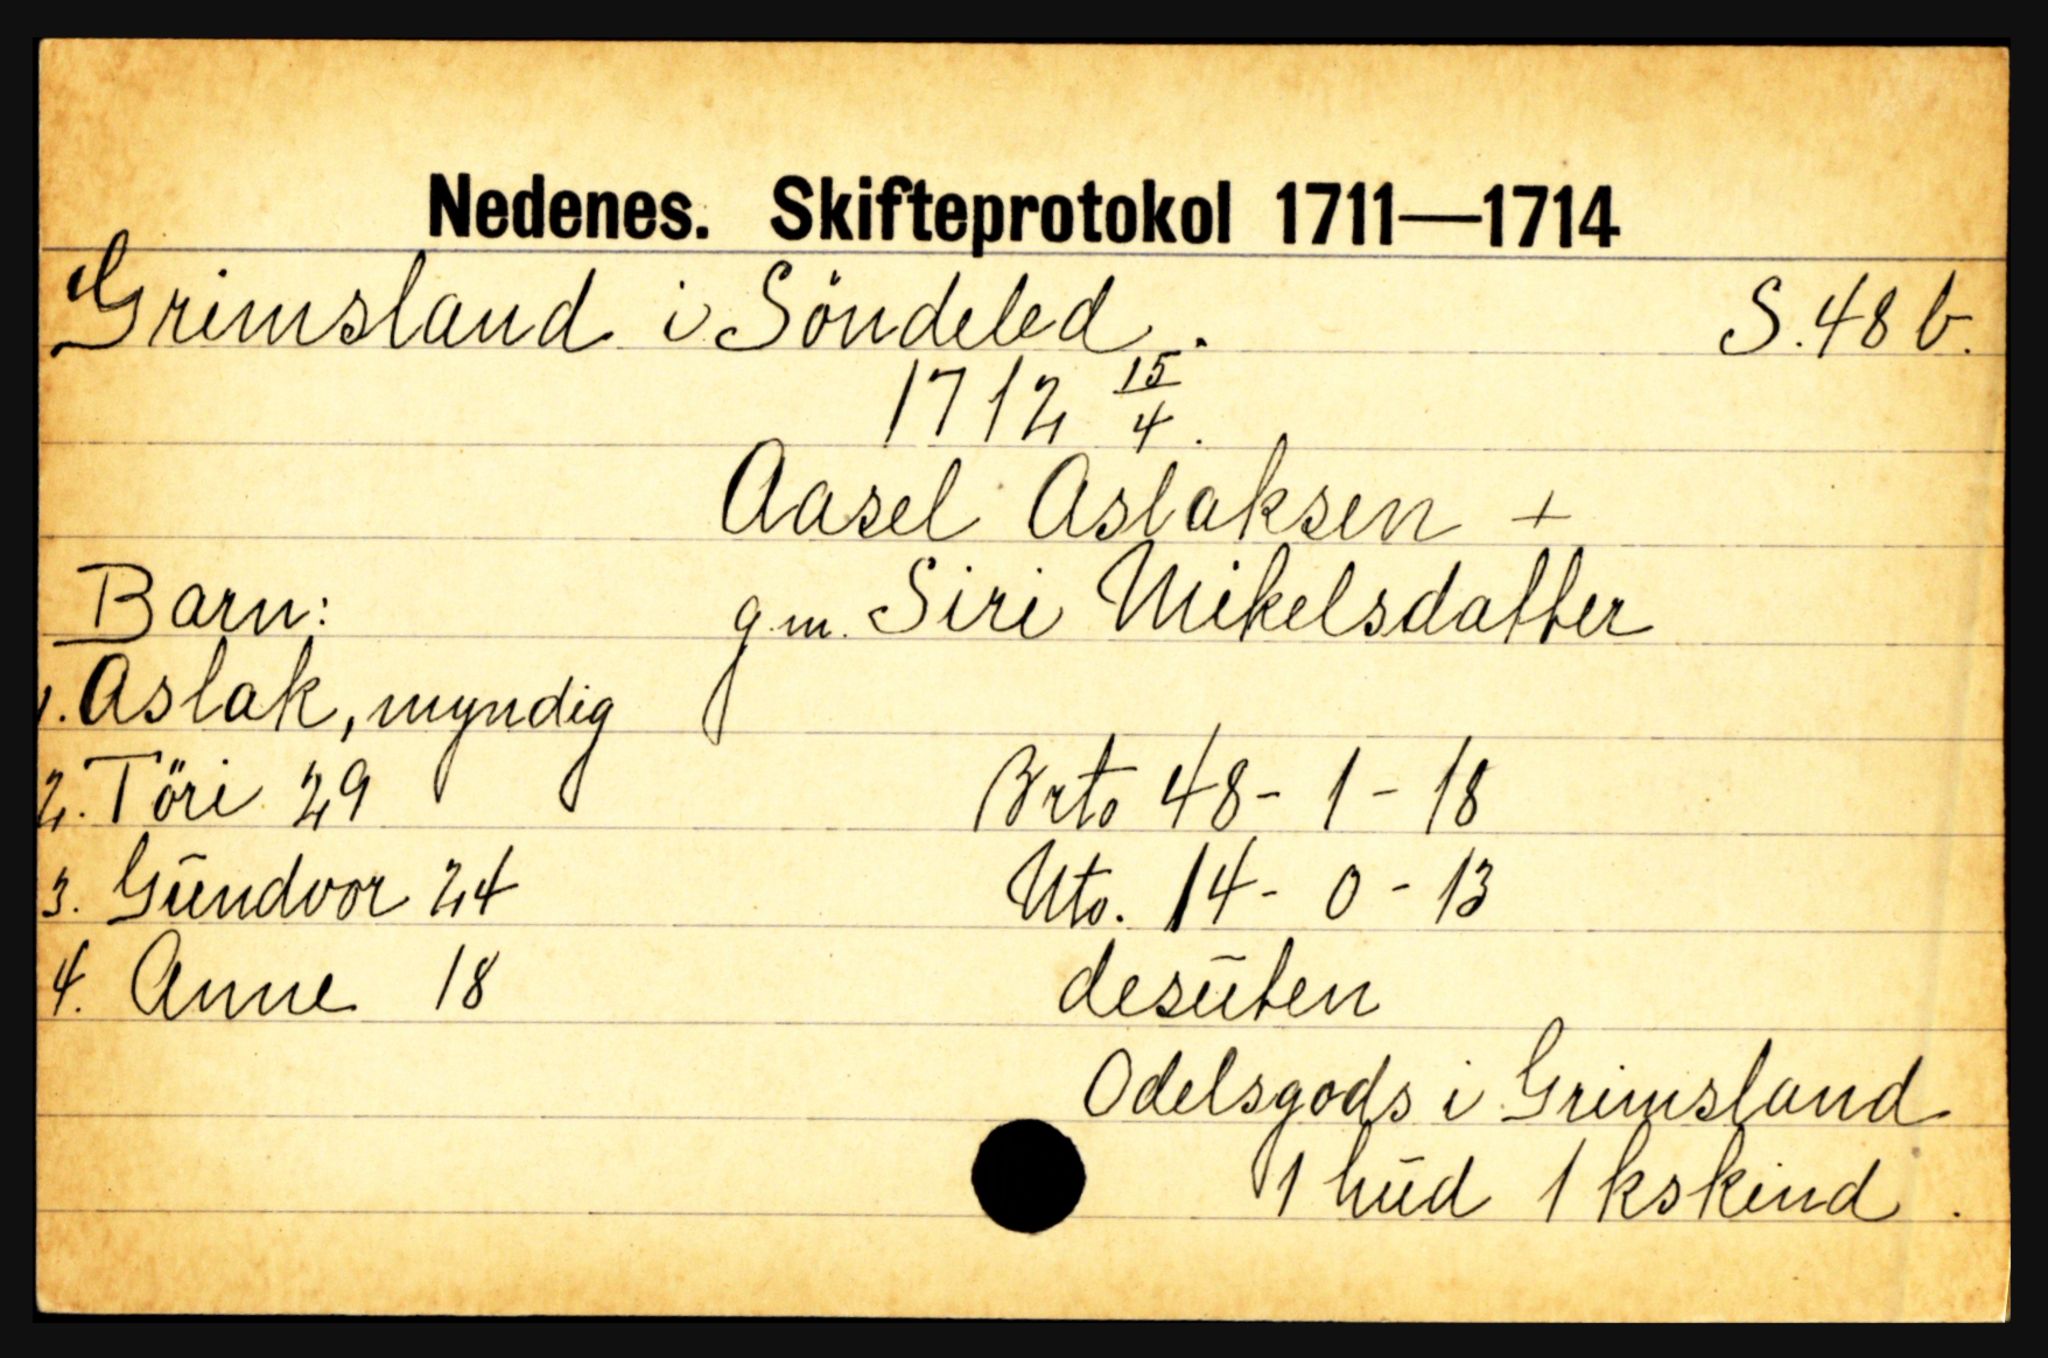 Nedenes. Skifteprotokol 1711—1714
Grimsland i Söndeled. S. 48 b.
1712 15/4.
Aasel Aslaksen +
Barn: g.m. Siri Mikelsdatter
1. Aslak, myndig
2. Töri 29 Brto 48 - 1 - 18
3. Gūndvor 24 Nto. 14 - 0 - 13
4. Anne 18 desūten
Odelsgods i Grimsland
1 hūd 1 kskind.